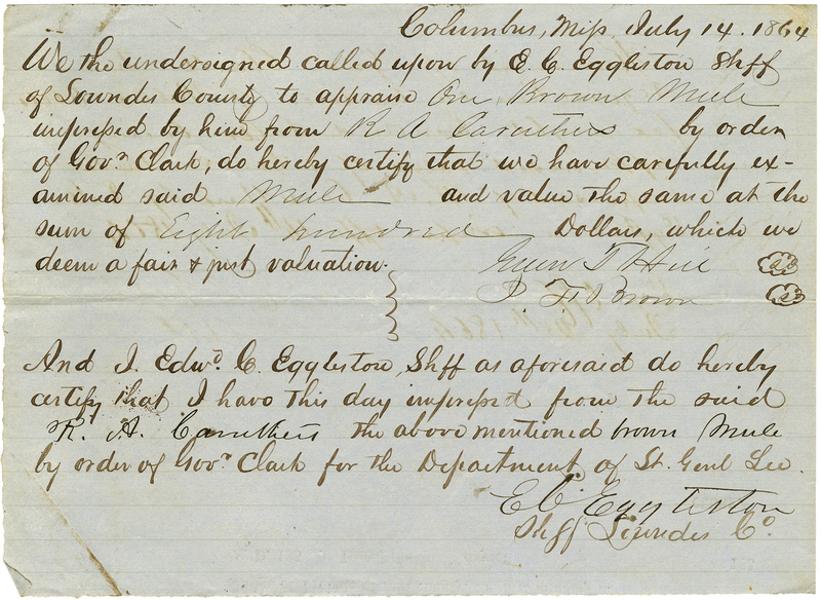 Columbus, Miss, July 14. 1864
We the undersigned called upon by E. C. Eggleston Shff
of Lowndes County to appraise One Brown Mule
impressed by him from R A Caruthers by order
of Govr. Clark, do hereby certify that we have carefully ex-
amined said Mule and value the same at the
sum of Eight hundred Dollars, which we
deem a fair & just valuation.
T Hill
J. F. Brown
And I. Edwd. C. Eggleston, Shff as aforesaid do hereby
certify that I have this day impressed from the said
R. A. Caruthers the above mentioned brown Mule
by order of Govr. Clark for the Department of Lt. Genl Lee.
E C. Eggleston
Shff Lowndes Co.